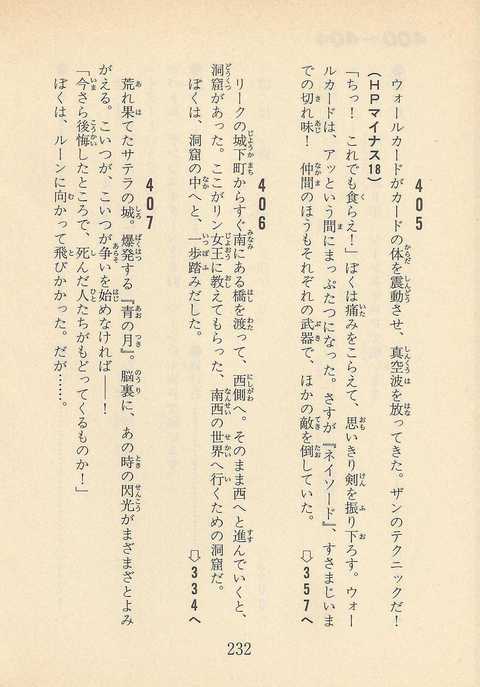 405
ウォールカードがカードの体を震動させ、真空波を放ってきた。ザンのテクニックだ！
（ＨＰマイナス18）
「ちっ！　これでも食らえ！」ぼくは痛みをこらえて、思いきり剣を振り下ろす。ウォー
ルカードは、アッという間にまっぷたつになった。さすが『ネイソード』、すさまじいま
での切れ味！　仲間のほうもそれぞれの武器で、ほかの敵を倒していた。
⇨357へ
406
リークの城下町からすぐ南にある橋を渡って、西側へ。そのまま西へと進んでいくと、
洞窟があった。ここがリン女王に教えてもらった、南西の世界へ行くための洞窟だ。
ぼくは、洞窟の中へと、一歩踏みだした。
⇨334へ
407
荒れ果てたサテラの城。爆発する『青の月』。脳裏に、あの時の閃光がまざまざとよみ
がえる。こいつが、こいつが争いを始めなければ――！
「今さら後悔したところで、死んだ人たちがもどってくるものか！」
ぼくは、ルーンに向かって飛びかかった。だが……。
232